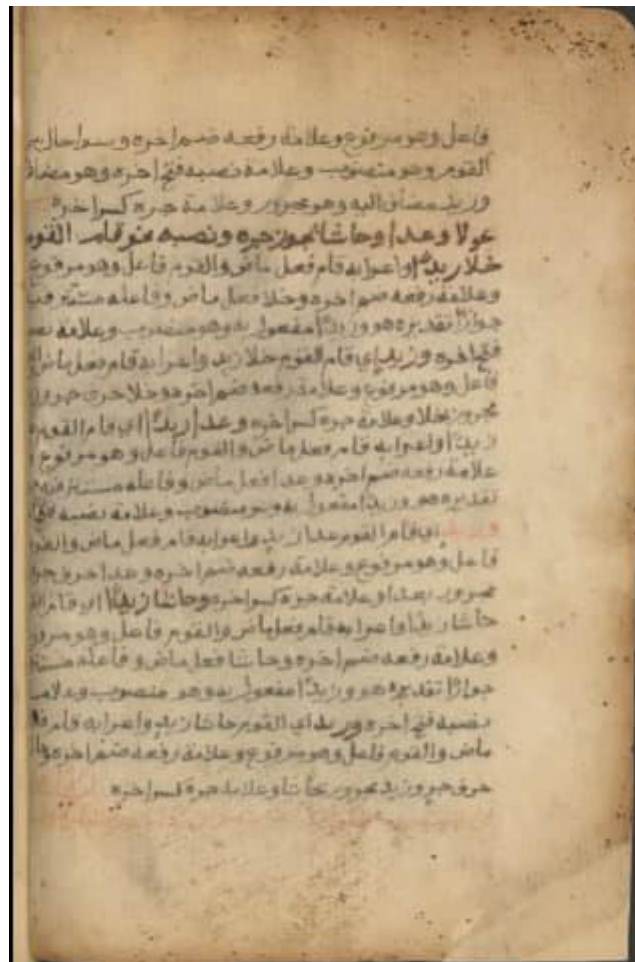 فاعل وهو مرفوع وعلامة رفعه ضم اخره وسوا حال من
القوم وهو منصوب وعلامة نصبه فتح اخره وهو مضاف
وزيد مضاف اليه وهو مجرور وعلامة جره كسر اخره
خلا وعدا وحاشا يجوز جره ونصبه نحو قام القوم
خلا زيدًا واعرابه قام فعل ماض والقوم فاعل وهو مرفوع
وعلامة رفعه ضم اخره وخلا فعل ماض وفاعله مستتر فيه
جوازًا تقديره هو وزيدًا مفعول به وهو منصوب وعلامة نصبه
فتح اخره وزيدٍ اي قام القوم خلا زيد واعرابه قام فعل ماض
فاعل وهو مرفوع وعلامة رفعه ضم اخره وخلا حرف جر وزيد
مجرور بخلا وعلامة جره كسر اخره وعدا زيدًا اي قام القوم
زيدًا واعرابه قام فعل ماض والقوم فاعل وهو مرفوع و
علامة رفعه ضم اخره وعدا فعل ماض وفاعله مستتر فيه
تقديره هو وزيدًا مفعول به وهو منصوب وعلامة نصبه فتح
وزيد اي قام القوم عدا زيدٍ واعرابه قام فعل ماض والقوم
فاعل وهو مرفوع وعلامة رفعه ضم اخره وعدا حرف جر
مجرور بعدا وعلامة جره كسر اخره وحاشا زيدًا اي قام
حاشا زيدًا واعرابه قام فعل ماض والقوم فاعل وهو مرفوع
وعلامة رفعه ضم اخره وحاشا فعل ماض وفاعله مستتر
جوازًا تقديره هو وزيدًا مفعول به وهو منصوب وعلامة
نصبه فتح اخره وزيد اي القوم حاشا زيدٍ واعرابه قام فعل
ماض والقوم فاعل وهو مرفوع وعلامة رفعه ضم اخره
حرف جر وزيد مجرور بحاشا وعلامة جره كسر اخره